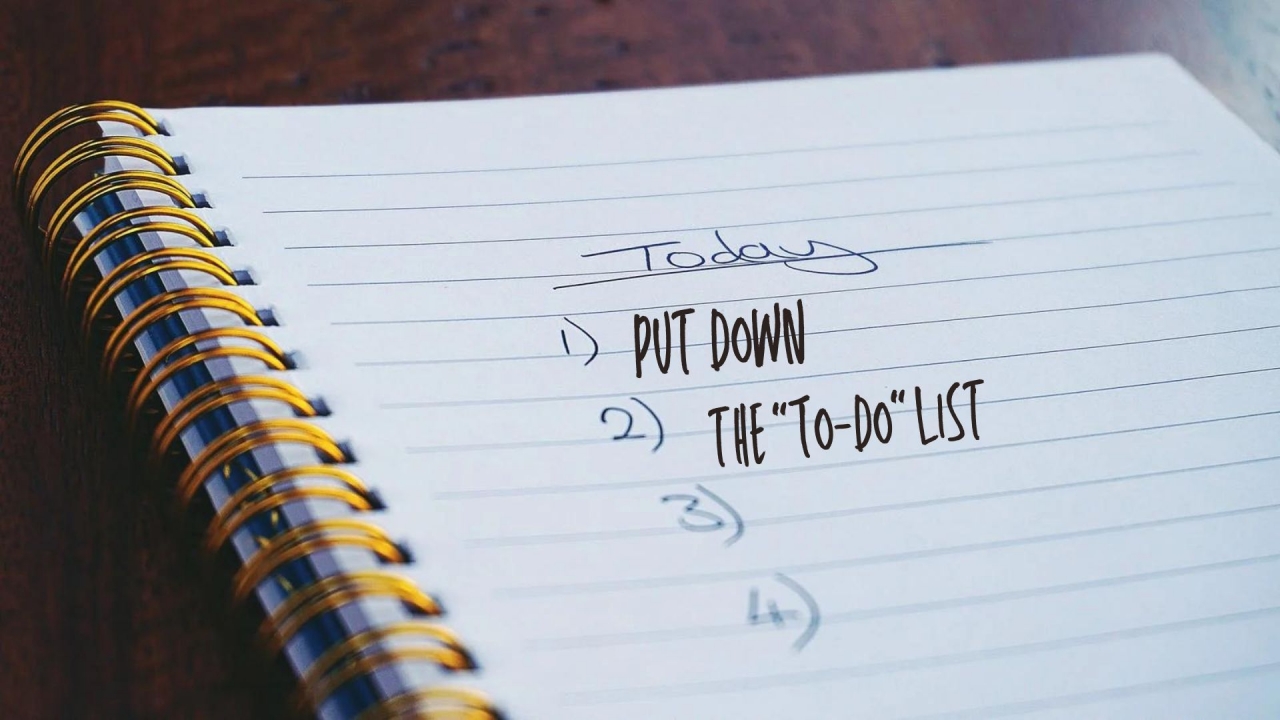 Today
1) PUT DOWN
2) THE “TO-DO“ LIST
3)
4)